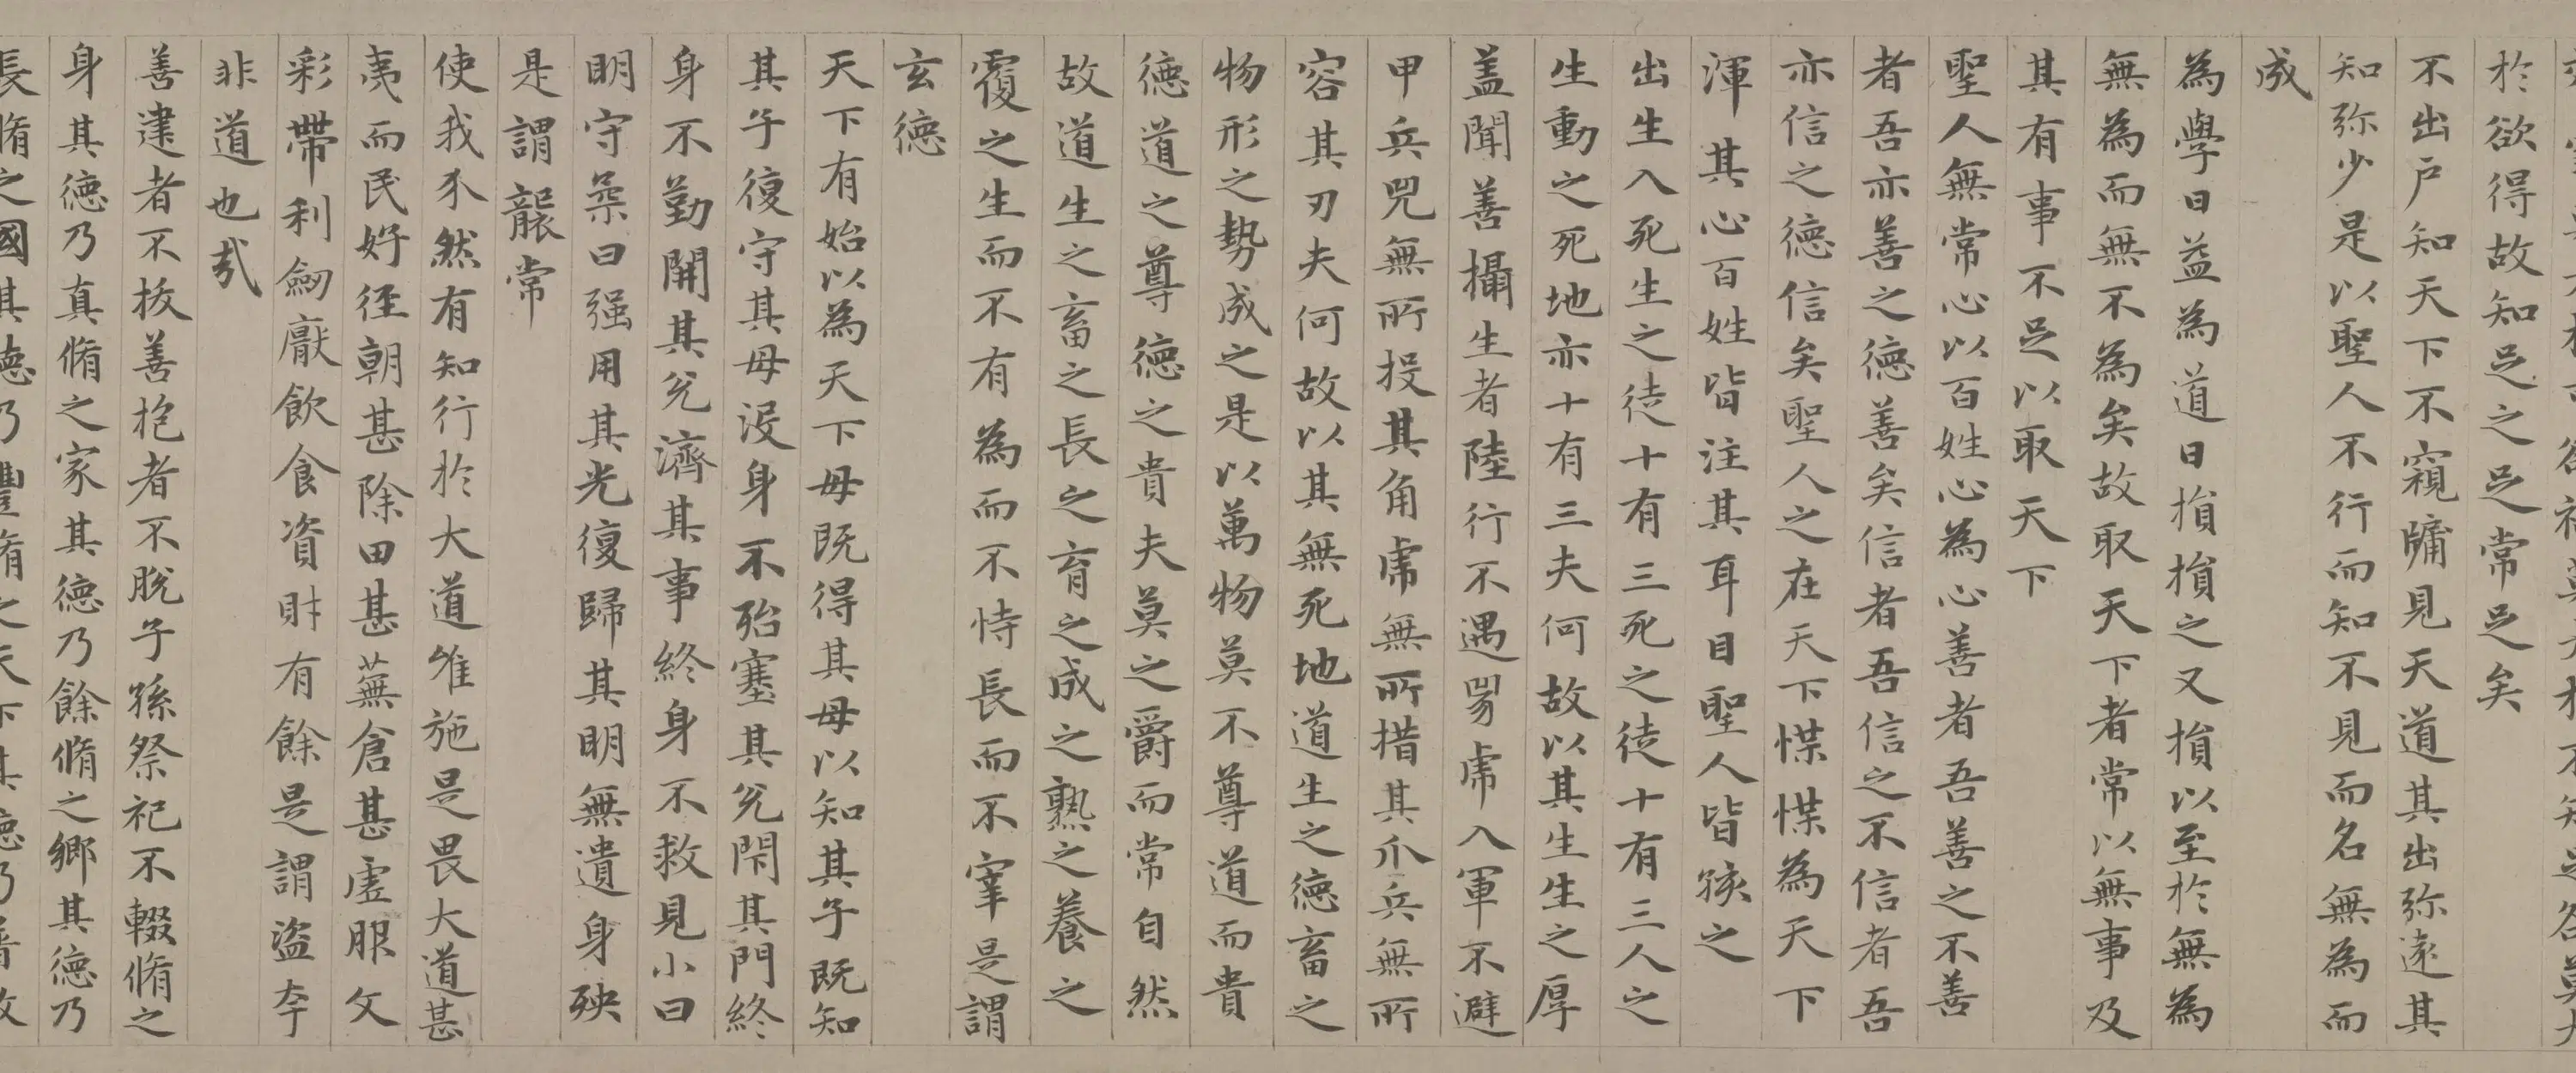 於欲得故知足之足常足矣
不出戶知天下不窺牖見天道其出弥遠其
知弥少是以聖人不行而知不見而名無為而
成
為學日益為道日損損之又損以至於無為
無為而無不為矣故取天下者常以無事及
其有事不足以取天下
聖人無常心以百姓心為心善者吾善之不善
者吾亦善之德善矣信者吾信之不信者吾
亦信之德信矣聖人之在天下惵惵為天下
渾其心百姓皆注其耳目聖人皆孩之
出生入死生之徒十有三死之徒十有三人之
生動之死地亦十有三夫何故以其生生之厚
盖聞善攝生者陸行不遇兕虎入軍不避
甲兵兕無所投其角虎無所措其爪兵無所
容其刃夫何故以其無死地道生之德畜之
物形之勢成之是以萬物莫不尊道而貴
德道之尊德之貴夫莫之爵而常自然
故道生之畜之長之育之成之熟之養之
覆之生而不有為而不恃長而不宰是謂
玄德
天下有始以為天下母既得其母以知其子既知
其子復守其母没身不殆塞其兌閇其門終
身不勤開其兌濟其事終身不救見小曰
明守柔曰强用其光復歸其明無遺身殃
是謂襲常
使我介然有知行於大道唯施是畏大道甚
夷而民好徑朝甚除田甚蕪倉甚虛服文
彩帶利劒厭飲食資財有餘是謂盜夸
非道也哉
善建者不拔善抱者不脫子孫祭祀不輟脩之
身其德乃真脩之家其德乃餘脩之鄉其德乃
長脩之國其德乃豐脩之天下其德乃普故